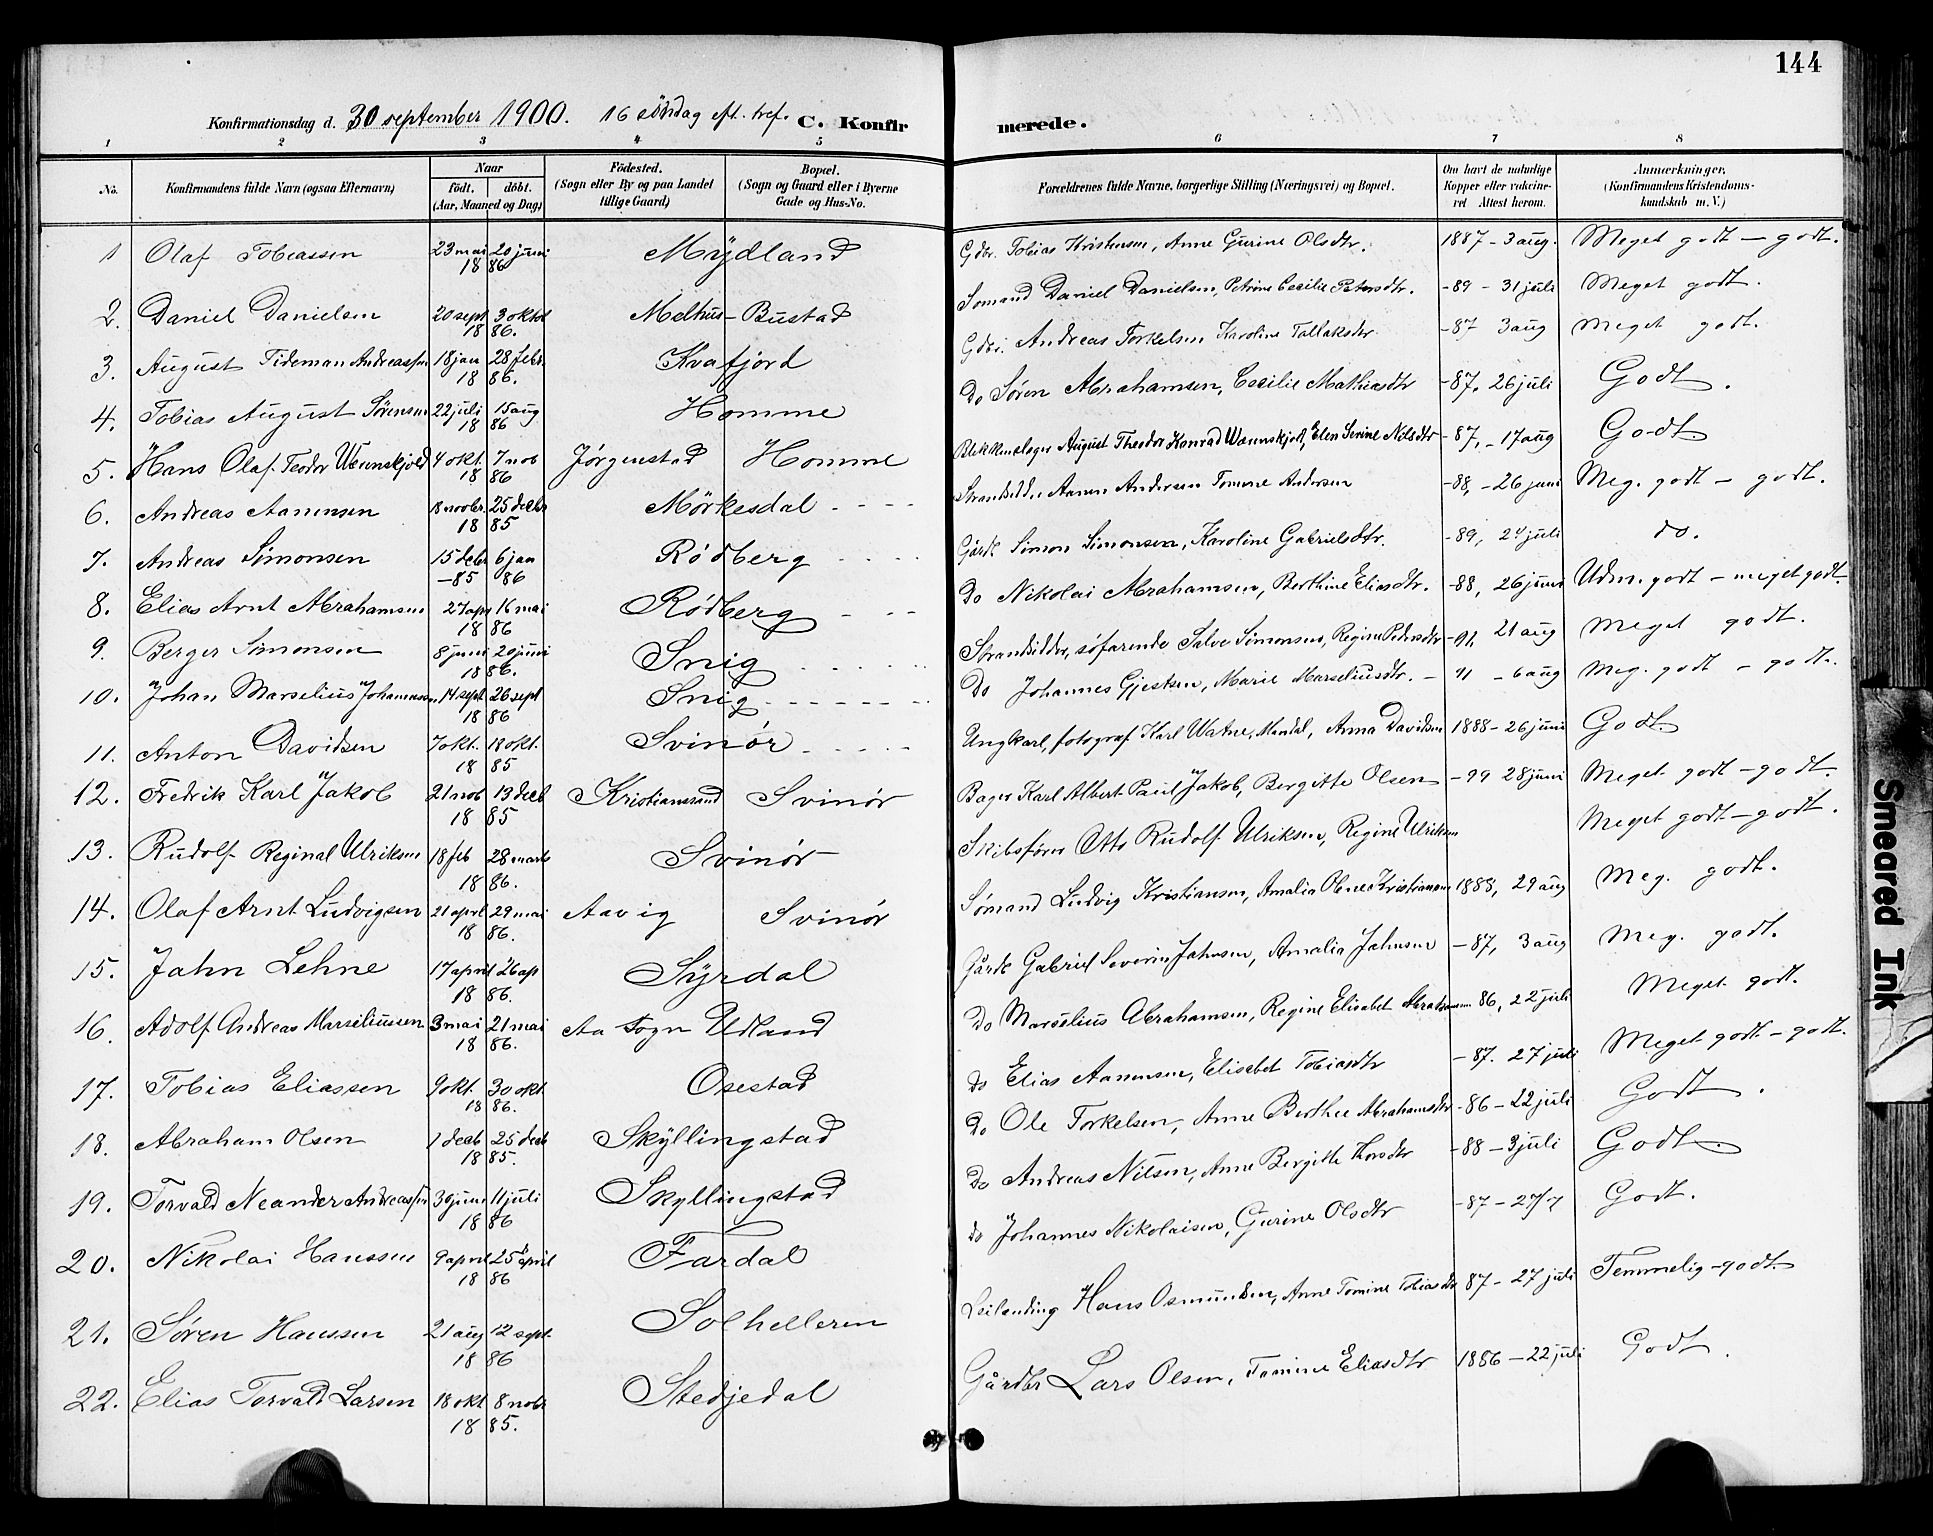 144
Konfirmationsdag d. 30 september 1900. 16 söndag eft. tref. C. Konfir merede.
1 2 3 4 5 6 7 8
No. Konfirmandens fulde Navn (ogsaa Efternavn) Naar födt. döbt. (Aar, Maaned og Dag) Födested. (Sogn eller By og paa Landet tillige Gaard) Bopæl. (Sogn og Gaard eller i Byerne Gade og Hus-No. Forældrenes fulde Navne, borgerlige Stilling (Næringsvei) og Bopæl. Om havt de naturlige Kopper eller vakcineret Attest herom. Anmærkninger, (Konfirmandens Kristendomskundskab m. V.)
1 Olaf Tobiassen 23 mai 20 juni 18 86 Mydland Gdbr. Tobias Kristensen, Anne Gurine Olsdtr. 1887 - 3 aug. Meget godt - godt.
2. Daniel Danielsen 20 sept 3 oktob 18 86. Melhus - Bustad Sømand Daniel Danielsen, Petrine Cecilie Petersdtr. -89 - 31 juli Meget godt.
3. August Tideman Andreassen 18 jan 28 febr. 18 86. Kvafjord Gdbr. Andreas Torkelsen Karoline Tallaksdtr -87 3 aug Meget godt.
4. Tobias August Sørensen 22 juli 15 aug 18 86 Homme Do Søren Abrahamsen, Cecilie Mathiasdtr -87. 26 juli Godt.
5. Hans Olaf Teodor Wennskjold 4 okt. 7 nob 18 86 Jørgenstad Homme Blikkenslager August Theodor Konrad Wennskjold, Elen Serine Nilsdtr -87, -17 aug Godt
6. Andreas Aanensen 18 novbr. 25 decbr 18 85 Mørkesdal Strandsidder Aanen Andersen Tomine Andersen -88, -26 juni Meg. godt - godt.
7. Andreas Simonsen 15 debr 6 jan -85 86 Rødberg Gårdb Simon Simonsen, Karoline Gabrielsdtr. -89, 24 juli do.
8. Elias Arnt Abrahamsen 27 apr 16 mai 18 86 Rødberg Do Nikolai Abrahamsen, Berthine Eliasdtr. -88, 26 juni Udm. godt - meget godt.
9. Berger Simonsen 8 juni 20 juni 18 86. Snig Strandsidder, søfarende Salve Simonsen, Regine Pedersdtr -91, 21 aug Meget godt.
10. Johan Marselius Johannessen 14 sept 26 sept 18 86 Snig Do Johannes Gjertsen, Marie Marseliusdtr. - 91 - 6 aug Meg. godt - godt.
11. Anton Davidsen 7 okt. 18 okt. 18 85 Svinør Ungkarl, fotograf Karl Watne, Mandal, Anna Davidsen 1888 - 26 juni Godt.
12. Fredrik Karl Jakob 21 nob 13 decb 18 85 Kristianssand Svinør Bager Karl Albert Paul Jakob, Bergitte Olsen -99 28 juni Meget godt - godt.
13. Rudolf Reginal Ulriksen 18 feb 28 marts 18 86. Svinør Skibsfører Otto Rudolf Ulriksen, Regine Ulriksen Meget godt - godt.
14. Olaf Arnt Ludvigsen 21 aprl 29 mai 18 86. Aavig Svinør Sømand Ludvig Kristiansen, Amalia Oline Kristiansen 1888, 29 aug Meg. godt.
15. Jahn Lehne 17 april 26 ap 18 86. Syrdal Gårdb Gabriel Severin Jahnsen, Amalia Jahnsen -87, 3 aug Meg. godt.
16. Adolf Andreas Marseliussen 3 mai 21 mai 18 86. Aa Sogn Udland Do Marselius Abrahamsen, Regine Elisabet Abrahamsen 86, 22 juli Meget godt.
17. Tobias Eliassen 9 okt. 30 okt. 18 86. Osestad do Elias Aanensen, Elisabet Tobiasdtr -87. 27 juli Meget godt - godt.
18. Abraham Olsen 1 decb 25 decb 18 85. Skyllingstad Do Ole Torkelsen, Anne Berthee Abrahamsdtr -86 - 22 juli Godt.
19. Torvald Neander Andreassen 30 juni 11 juli 18 86 Skyllingstad Do Andreas Nilsen, Anne Bergitte Korsdtr -88 - 3 juli Godt
20. Nikolai Hanssen 9 april 25 april 18 86 Fardal do Johannes Nikolaisen, Gurine Olsdtr -87 - 27/7 Godt.
21. Søren Hanssen 21 aug 12 sept. 18 86 Solhelleren Leilending Hans Osmundsen, Anne Tomine Tobiasdtr 87 - 27 juli Temmelig - godt.
22. Elias Torvald Larsen 18 okt 8 nobr 18 85. Stedjedal Gårdbr Lars Olsen, Tomine Eliasdtr 1886 - 22 juli Godt.
Smeared Ink